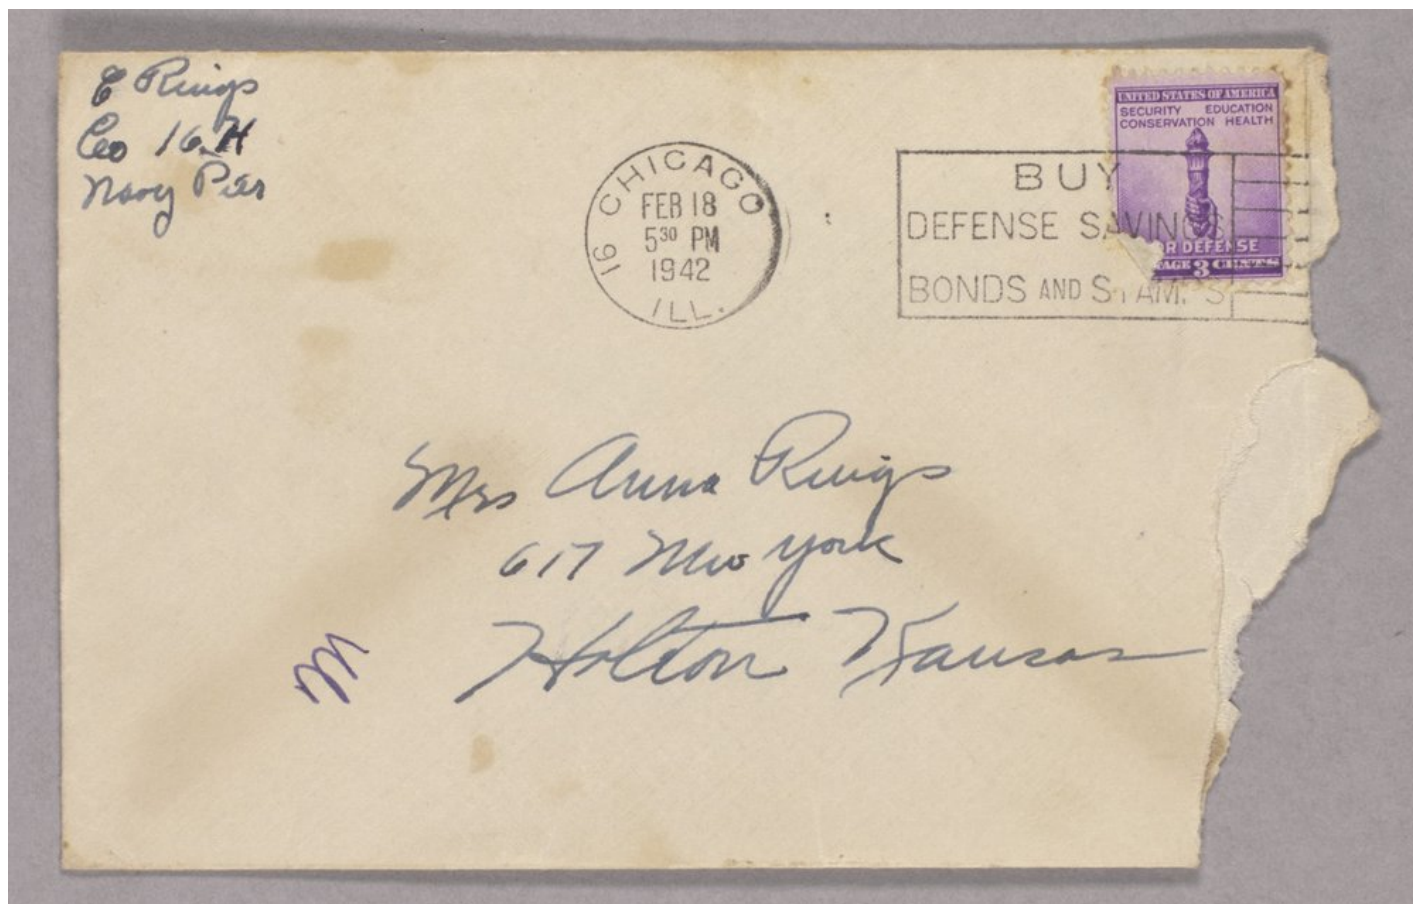 E Rings
Co 16. H
Navy Pier
16 CHICAGO ILL.
FEB 18
5³⁰ PM
1942
BUY
DEFENSE SAVINGS
BONDS AND STAMPS
UNITED STATES OF AMERICA
SECURITY EDUCATION
CONSERVATION HEALTH
OR DEFENSE
TAGE 3 CENTS
Mrs Anna Rings
617 New York
Holton Kansas
M